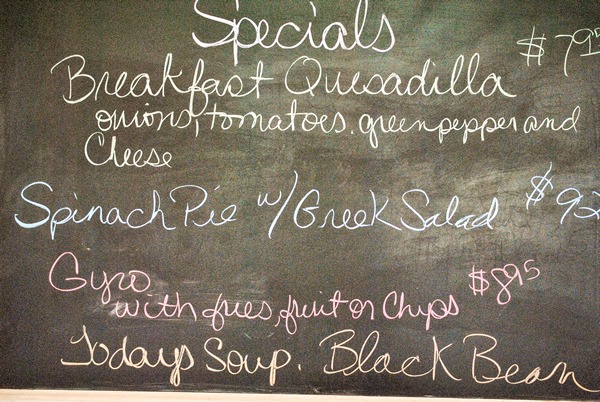 Specials
Breakfast Quesadilla $795
onions, tomatoes, green pepper and
Cheese
Spinach Pie w/ Greek Salad
Gyro $895
with fries, fruit or Chips
Todays Soup. Black Bean